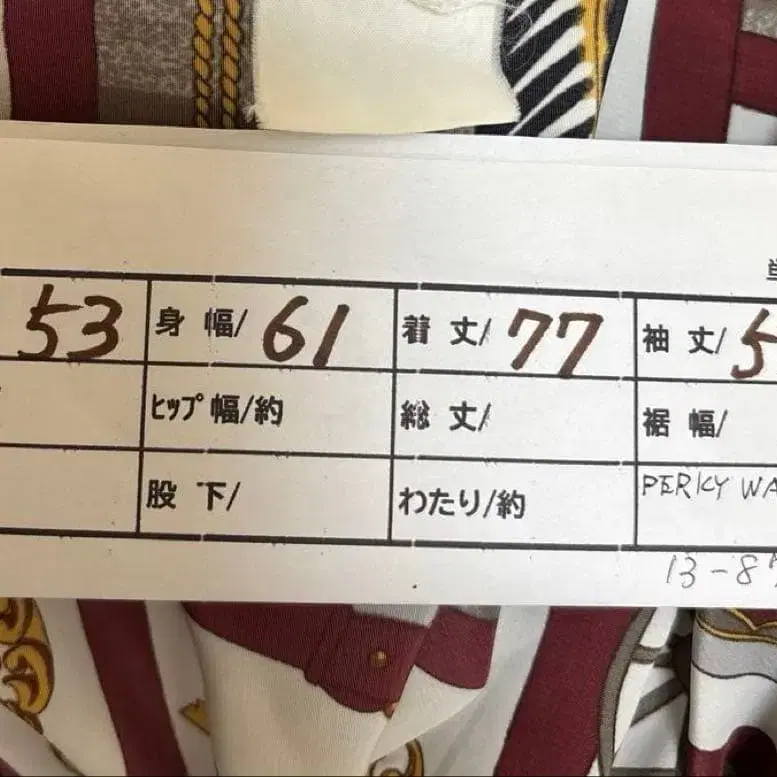 単
53 身 幅/ 61 着 丈/ 77 袖 丈/ 5
ヒップ 幅/約 総 丈/ 裾 幅/
股 下/ わたり/約 PERKY WA
13-87